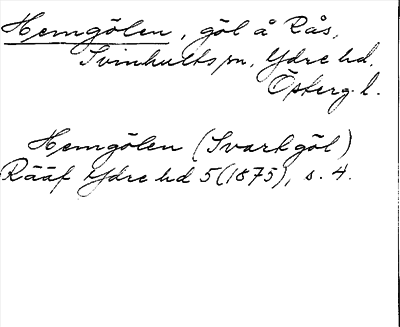 Hemgölen, göl å Rås,
Svinhults sn, Ydre hd.
Österg. l.
Hemgölen (Svartgöl)
Rääf Ydre hd 5 (1875), s. 4.